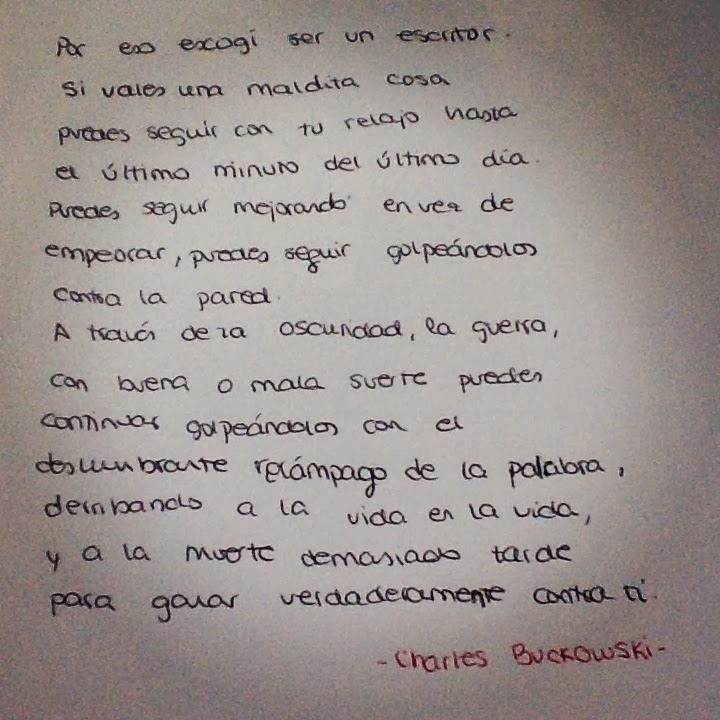 Por eso excogi ser un escritor.
Si vales una maldita cosa
puedes seguir con tu relajo hasta
el último minuto del último día.
Puedes seguir mejorando en vez de
empeorar, puedes seguir golpeándolos
contra la pared.
A través de la oscuridad, la guerra,
con buena o mala suerte puedes
continuar golpeándolos con el
deslumbrante relámpago de la palabra,
derribando a la vida en la vida,
y a la muerte demasiado tarde
para ganar verdaderamente contra ti.
-Charles Buckowski-